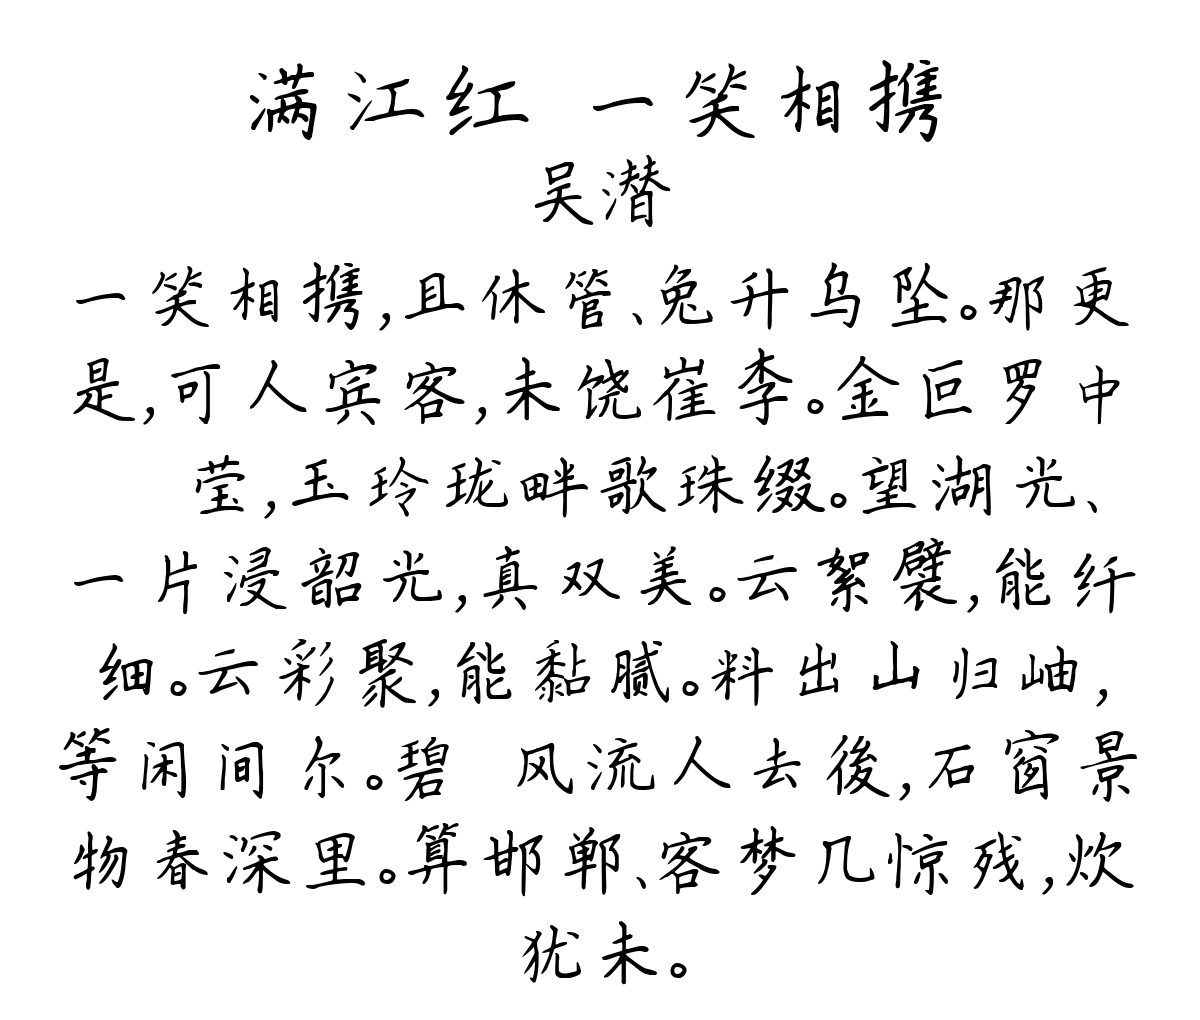 满江红 一笑相携
吴潜
一笑相携,且休管、兔升乌坠。那更
是,可人宾客,未饶崔李。金叵罗中
莹,玉玲珑畔歌珠缀。望湖光、
一片浸韶光,真双美。云絮襞,能纤
细。云彩聚,能黏腻。料出山归岫,
等闲间尔。碧 风流人去後,石窗景
物春深里。算邯郸、客梦几惊残,炊
犹未。